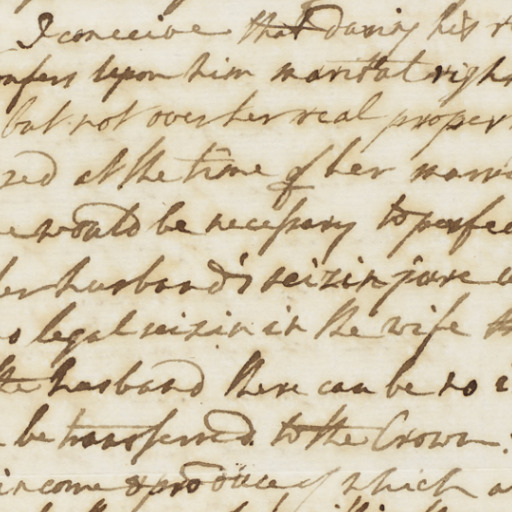 I conceive that during his r
onfers upon him marital righ
but not over her real proper
zed at the time of her marri
e would be necessary to perfec
her husband's seizin jure u
o legal seizin in the wife th
the husband there can be no i
be transferred to the Crown.
income & produce of which a